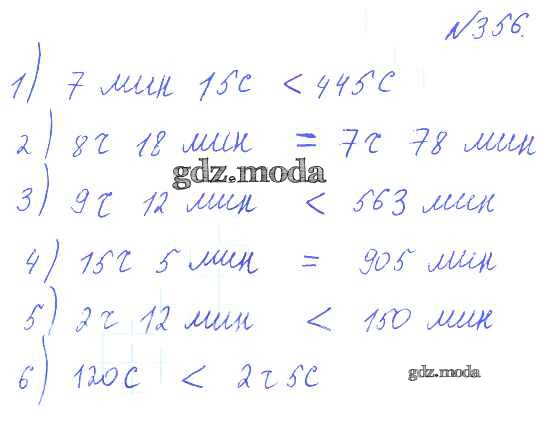 №356.
1) 7 мин 15с < 445с
2) 8ч 18 мин = 7ч 78 мин
gdz.moda
3) 9ч 12 мин < 563 мин
4) 15ч 5 мин = 905 мин
5) 2ч 12 мин < 150 мин
6) 120с < 2ч5с
gdz.moda